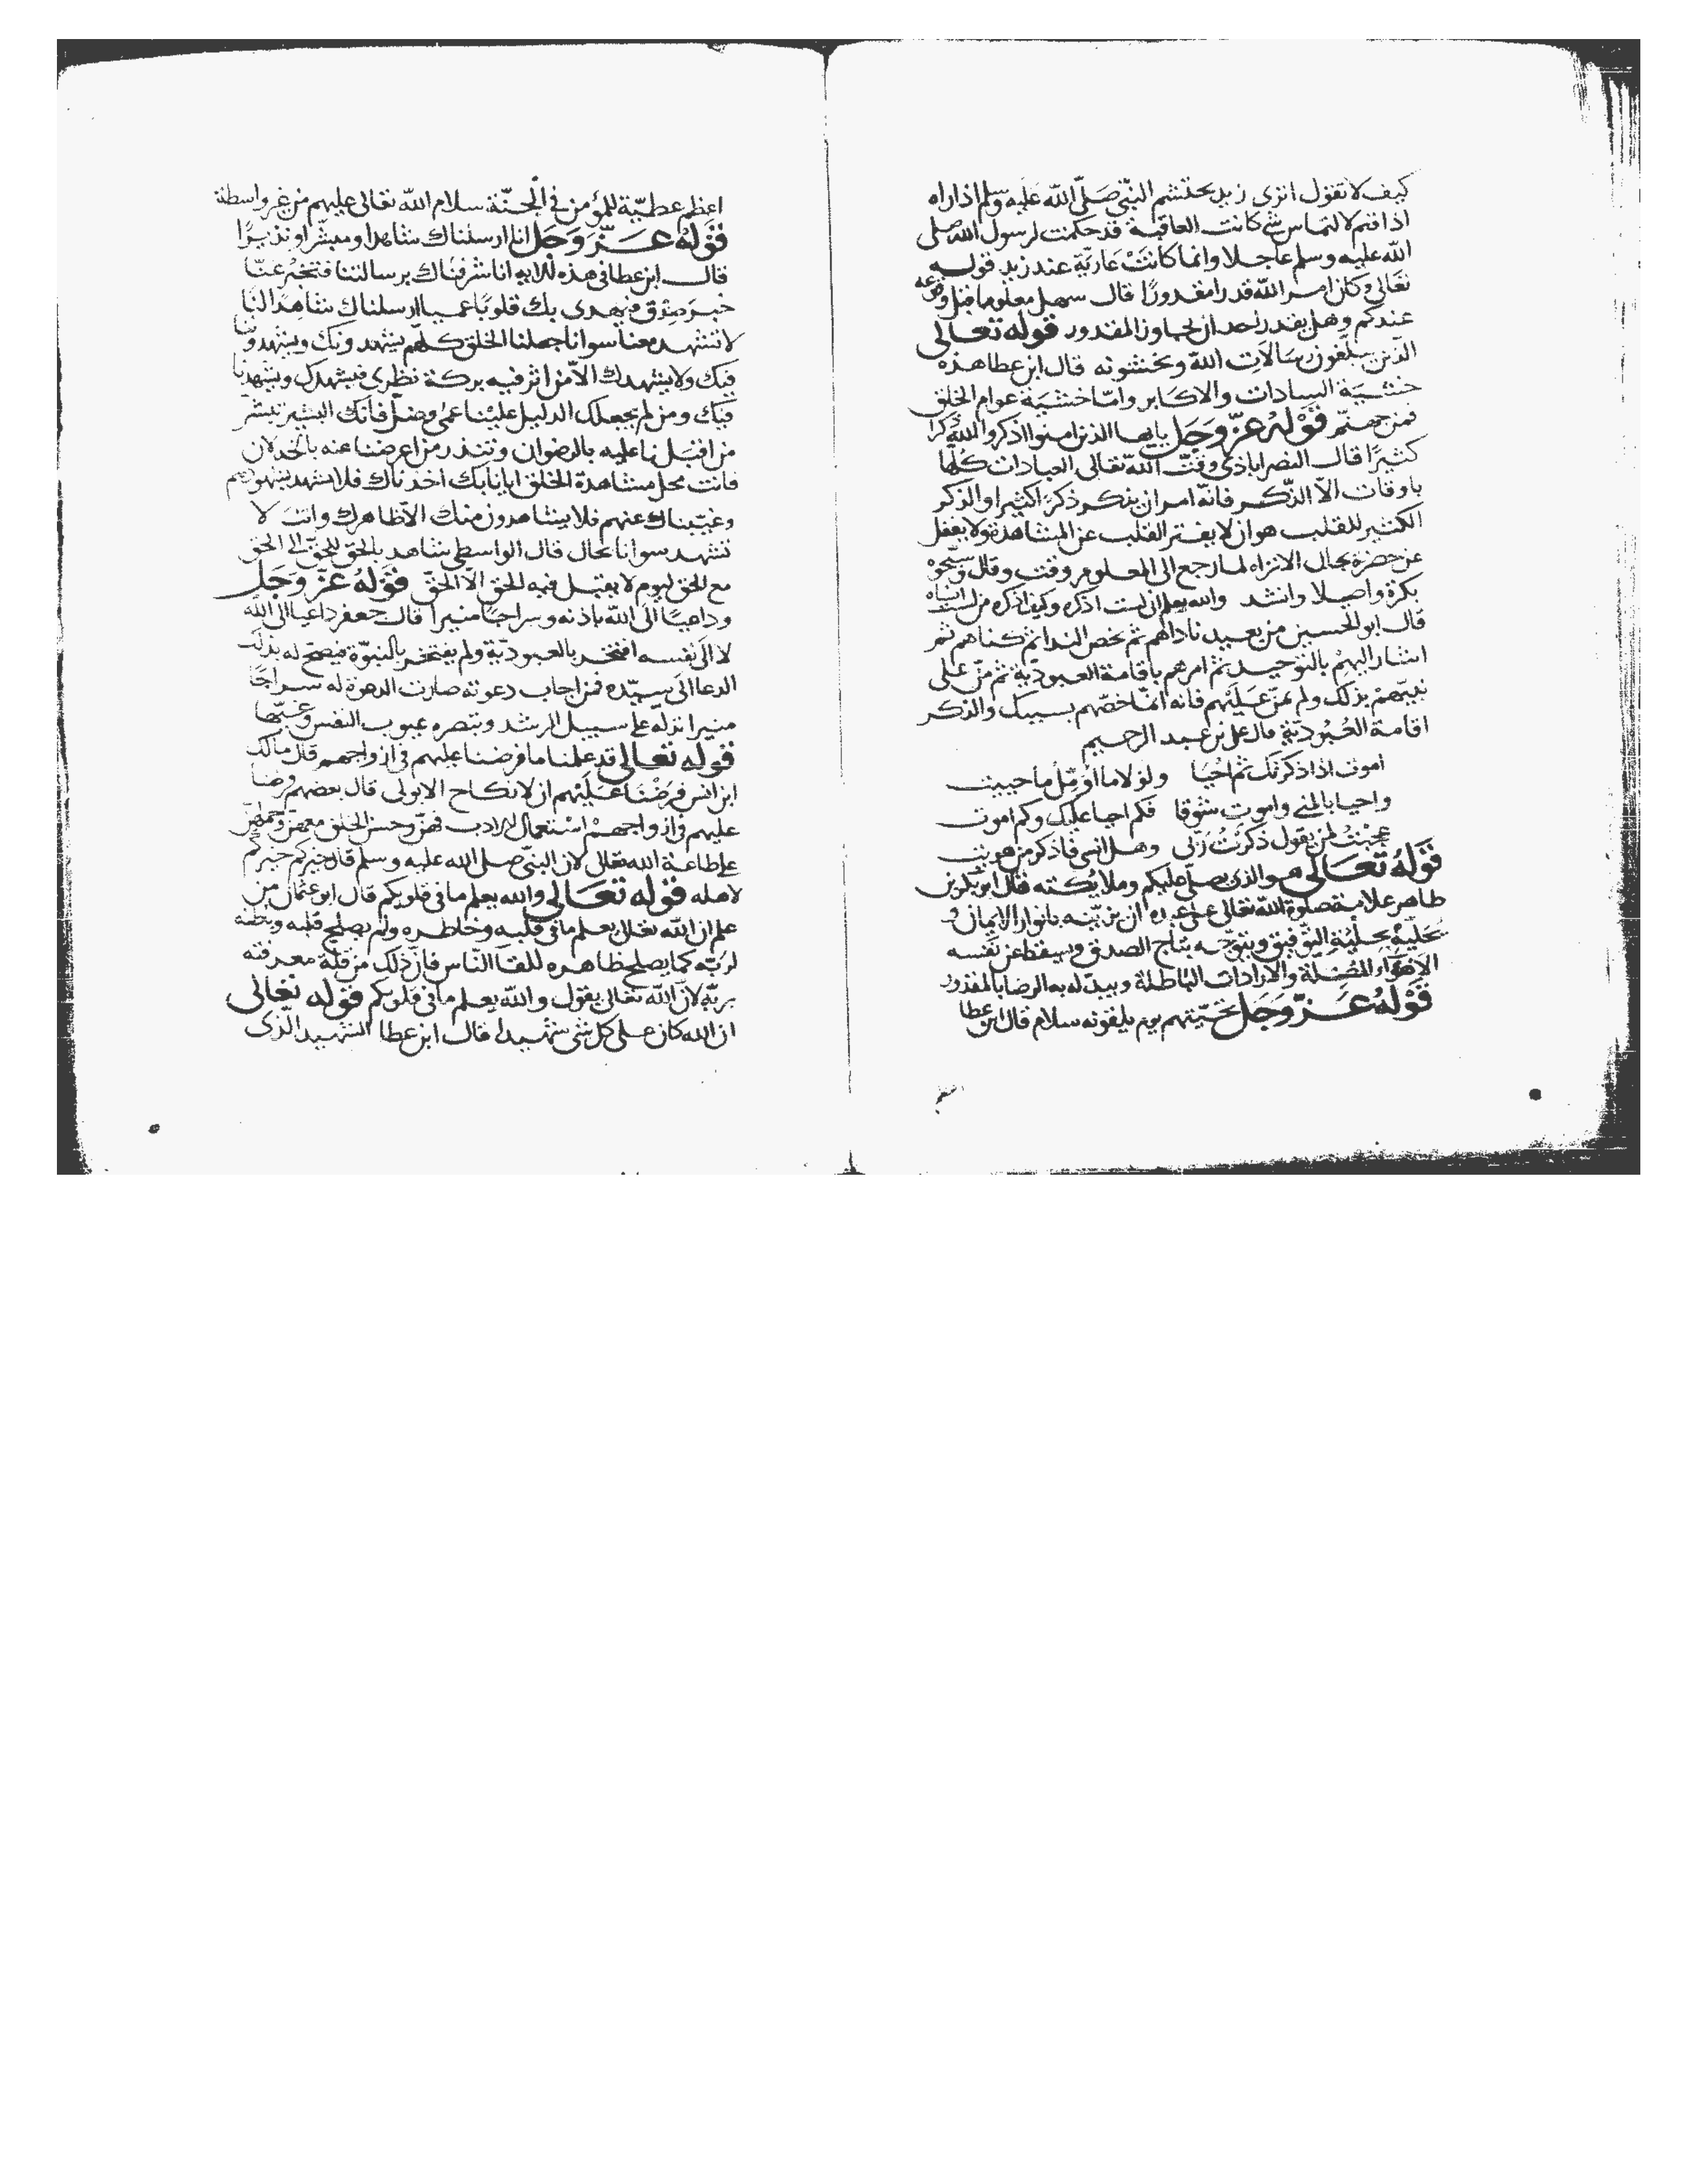 كيف لا تقول انزى زيد يحتشم النبّي صَلّى الله عليه وسلم اذا راه
اذا قم لالتماس شي كانت العاقبة قد حكمت لرسول الله صلى
الله عليه وسلم عاجلا وانما كانَتْ عَاريَة عند زيد قوله
تعَالى وكان امر الله قدرا مقدورًا قال سهل معلوما قبل وقوعه
عندكم وهل يقدر احد ان يجاوز المقدور قوله تعَالى
الذين يبلغون رسَالاَت الله ويخشونه قال ابن عطا هذه
خشيَة السادات والاكابر وامّا خشيَة عوام الخلق
فمن جهنّم قَوْلهُ عزّ وَجَل يايها الذين امنوا اذكروا الله ذكرًا
كثيرًا قال النصراباذى وقت الله تعَالى العبادات كلها
باوقات الاّ الذّكر فانّه امر ان يذكر ذكرًا كثيرا والذكر
الكثير للقلب هو ان لا يفتر القلب عن المشاهدة ولا يغفل
عن حضرة بحال الانزاء لما رجع الى المعلوم وقت وقال وَسَبّحوْهُ
بكرة واصيلا وانشد والله يعلم انى لست اذكره وكيف اذكره من لست انساه
قال ابو الحسين من بعيد ناداهم ثم خص الندا ثم كناهم ثم
اشار اليهِمْ بالتوحيد ثم امرهم باقامة العبوديّة ثم منّ على
نبيّهمْ بذلك ولم يمنّ عَلَيْهم فانه انمّا خصّهم بسببك والذكر
اقامة العُبُوديّة قال على بن عبد الرحيم
اموت اذا ذكرتك ثم احْيا ولولا ما اؤمّل ما حييت
واحيا بالمنى واموت شوقا فكم احيا عليك وكم اموت
عجبْتُ لمن يقول ذكرتُ رَبّى وهل انسى فاذكر من هويت
قَوْلهُ تعَالى هو الذى يصلى عليكم وملائكته قال ابو بكر بن
طاهر علامة صلوة الله تعالى على عبده ان يزيّنه بانوار الايمان و
يحَليَهُ بحليْةِ التوّفيق ويتوّجه بتاج الصدق ويسقط عن نفسه
الاهْوَاء المُضِلّة والارادات البَاطلة ويبدّله به الرضا بالمقدور
قَوْلهُ عَزّ وَجَل تحيّتهم يوم يلقونه سلام قال ابن عطا
اعظم عطيّة للمؤمن فى الجنّة سلام الله تعالى عليهم من غير واسطة
قَوْلهُ عَزّ وَجَل انا ارسلناك شاهدا ومبشرا ونذيرًا
قال ابن عطا فى هذه الايه انا شرفناك برسالتنا فتخبرُ عنّا
خبر صِدْق فيهدى بك قلوبًا عميا ارسلناك شاهدًا لنَا
لا تشهد معنا سوانا جعلنا الخلق كلّهم يشهدونك ويشهدونّا
فيك ولا يشهدك الاّ من اثر فيه بركة نظرى فيشهدك ويشهدنا
فيك ومن لم يجعلك الدليل عليْنا عمى وضلّ فانّك البشير تبشّر
من اقبَل بنا عليه بالرضوان وتنذر من اعرضنا عنه بالخذلان
فانت محل مشاهدة الخلق ايانا بك اخذناك فلا تشهد شهودهم
وغيّبناك عنهم فلا يشاهدون منك الاّ ظاهرك وانت لا
تشهد سوانا بحال قال الواسطى شاهد بالحق للحقّ الى الحق
مع الحق ليوم لا يقبل فيه الحق الاّ الحقّ قَوْلهُ عَزّ وَجَل
وداعيًا الى الله باذنه وسراجًا منيرا قال جعفر داعيا الى الله
لا الى نفسه افتخر بالعبوديّة ولم يفتخر بالنبوّة فيصحّ له بذلك
الدعا الى سيّده فمن اجاب دعوته صارت الدعوة له سراجًا
منيرا تدلّه على سبيل الرشد وتبصره عيوب النفس وغيّها
قوله تعَالى قد علمنا ما فرضنا عليهم فى ازواجهم قال مالك
ابن انس فرَضْنا عَلَيْهم ان لا نكاح الا بولى قال بعضهم فرضا
عليهم فى ازواجهمْ اسْتعمال الادب فيهنّ وحسن الخلق معهنّ وحملهنّ
على طاعة الله تعالى لان النبّي صلى الله عليه وسلم قال خيركم خيركم
لاهله قوله تعَالى والله يعلم ما فى قلوبكم قال ابو عثمان من
علم ان الله تعالى يعلم ما فى قلبه وخاطره ولم يصلح قلبه وباطنه
لربّه كما يصلح ظاهره للقاَ النّاس فان ذلك من قلّة معرفته
بربّه لانّ الله تعالى يقول والله يعلم ما فى قلوبكم قوله تعَالى
ان الله كان على كل شى شهيدا قال ابن عطا الشهيد الذى